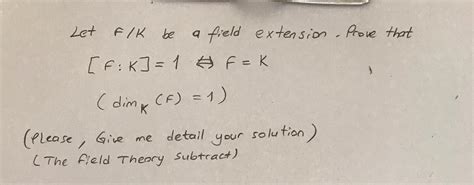 Let F/K be a field extension. Prove that
[F:K]=1 ⇔ F=K
(dim_K (F) = 1)
(Please, Give me detail your solution)
(The field Theory subtract)